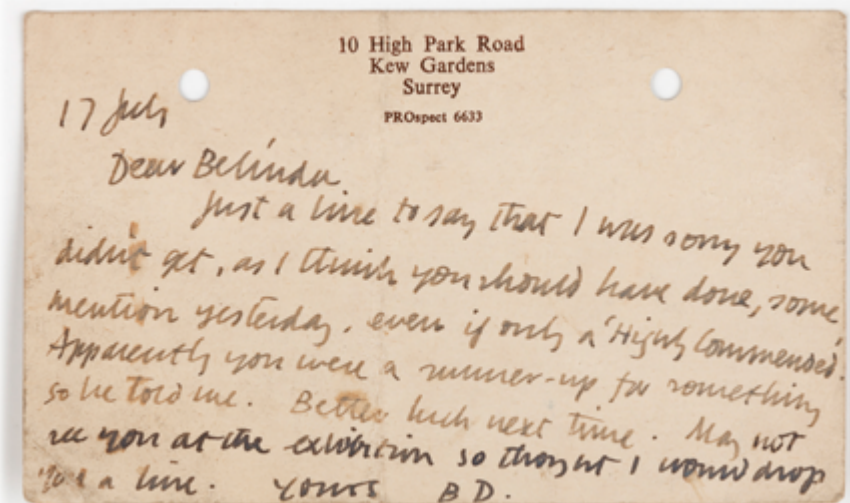 10 High Park Road
Kew Gardens
Surrey
PROspect 6633
17 July
Dear Belinda
Just a line to say that I was sorry you
didn't get, as I think you should have done, some
mention yesterday, even if only a 'Highly Commended'.
Apparently you were a runner-up for something
so he told me. Better luck next time. May not
see you at the exhibition so thought I would drop
you a line. Yours BD.